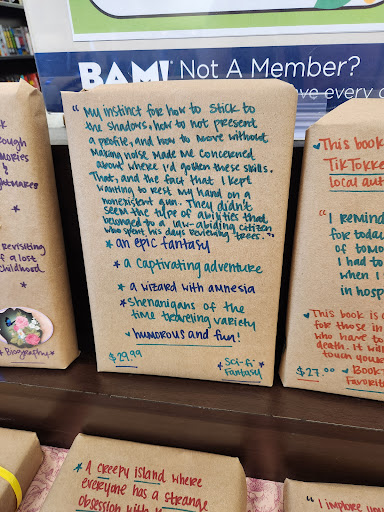 BAM! Not A Member?
ve every
"My instinct for how to stick to
the shadows, how to not present
a profile, and how to move without
making noise made me concerned
about where I'd gotten these skills.
That, and the fact that I kept
wanting to rest my hand on a
nonexistent gun. They didn't
seem the type of abilities that
belonged to a law-abiding citizen
who spent his days reviewing trees."
* an epic fantasy
* a captivating adventure
* a wizard with amnesia
* Shenanigans of the
time traveling variety
* humorous and fun!
$29.99
* Sci-fi *
Fantasy
revisiting
of a lost
childhood
This book
TikTokke
local aut
"I remin
for today
of tom
I had to
when I
in hosp
This book is
for those in
who have to
death. It will
touch you
Book
Favorit
$27.00
* A creepy island where
everyone has a strange
obsession with
"I implore